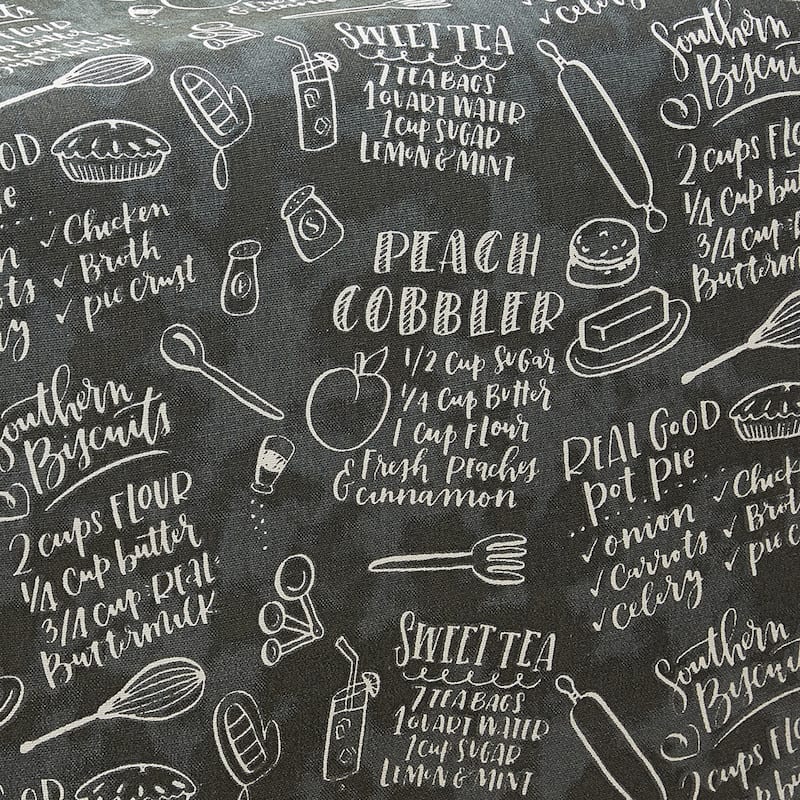 & cinnamon
✓ Celery
SWEET TEA
7 TEA BAGS
1 QUART WATER
1 cup SUGAR
LEMON & MINT
Southern
Biscuits
2 cups FLOUR
1/4 Cup butter
3/4 cup
Buttermilk
✓ Chicken
✓ Broth
✓ pie crust
S
P
PEACH
COBBLER
1/2 Cup Sugar
1/4 Cup Butter
1 Cup Flour
& Fresh Peaches
& cinnamon
Southern
Biscuits
2 cups FLOUR
1/4 Cup butter
3/4 cup REAL
Buttermilk
REAL GOOD
Pot Pie
✓ onion
✓ Carrots
✓ Celery
✓ Chicken
✓ Broth
✓ pie
SWEET TEA
7 TEA BAGS
1 QUART WATER
1 cup SUGAR
LEMON & MINT
Southern
Biscuits
2 cups